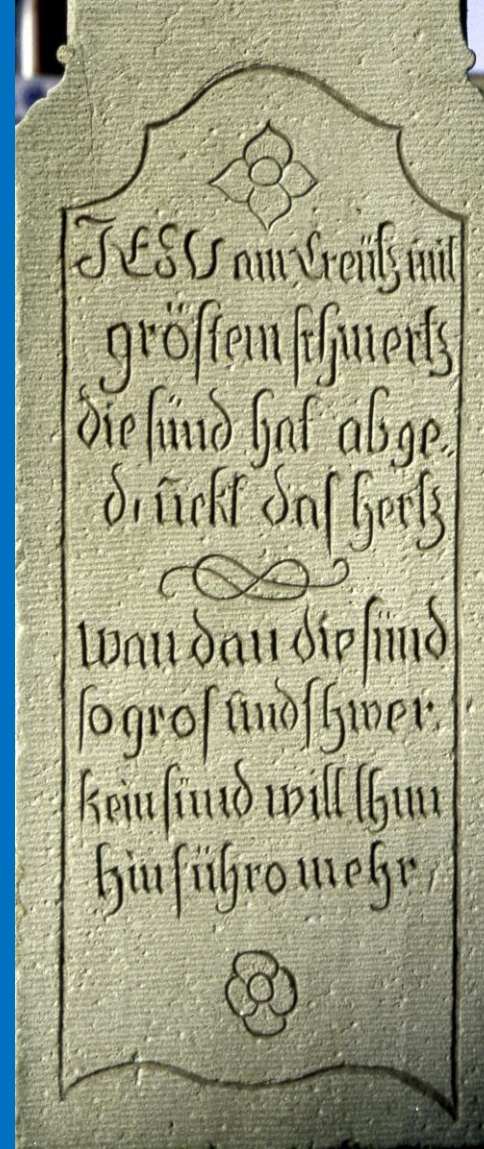 JESU am Creütz mit
gröstem schmertz
die sünd hat abge..
drückt das hertz
wan dan die sünd
so gros und schwer.
kein sünd will thun
hinführo mehr,